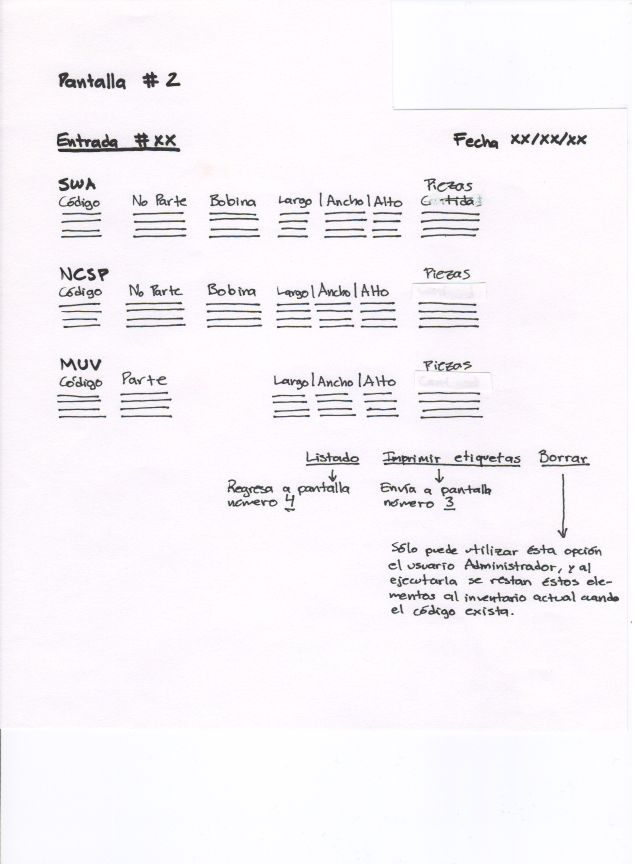 Pantalla # 2
Entrada # XX
Fecha XX/XX/XX
SWA
Piezas
Código No Parte Bobina Largo | Ancho | Alto
NCSP
Piezas
Código No Parte Bobina Largo | Ancho | Alto
MUV
Piezas
Código Parte Largo | Ancho | Alto
Listado Imprimir etiquetas Borrar
Regresa a pantalla
número 4
Envía a pantalla
número 3
Sólo puede utilizar ésta opción
el usuario Administrador, y al
ejecutarla se restan éstos ele-
mentos al inventario actual cuando
el código exista.